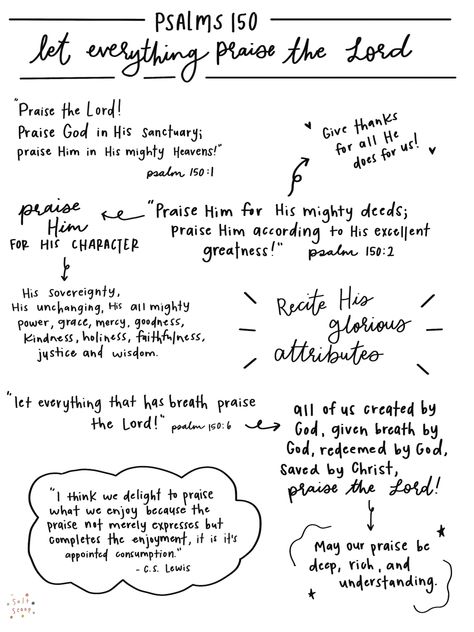 PSALMS 150
let everything praise the Lord
"Praise the Lord!
Praise God in His sanctuary;
praise Him in His mighty Heavens!"
psalm 150:1
Give thanks
for all He
does for us!
praise
Him
FOR HIS CHARACTER
"Praise Him for His mighty deeds;
Praise Him according to His excellent
greatness!" psalm 150:2
His sovereignty,
His unchanging, His all mighty
power, grace, mercy, goodness,
kindness, holiness, faithfulness,
justice and wisdom.
Recite His
glorious
attributes
"let everything that has breath praise
the Lord!" psalm 150:6
all of us created by
God, given breath by
God, redeemed by God,
saved by Christ,
praise the Lord!
"I think we delight to praise
what we enjoy because the
praise not merely expresses but
completes the enjoyment, it is it's
appointed consumption."
- C.S. Lewis
May our praise be
deep, rich, and
understanding.
Salt
Scoop